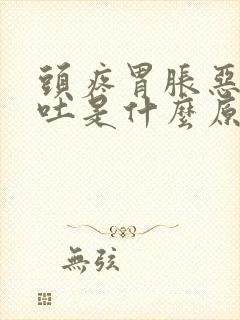 頭疼胃脹惡
吐是什麼原
無弦